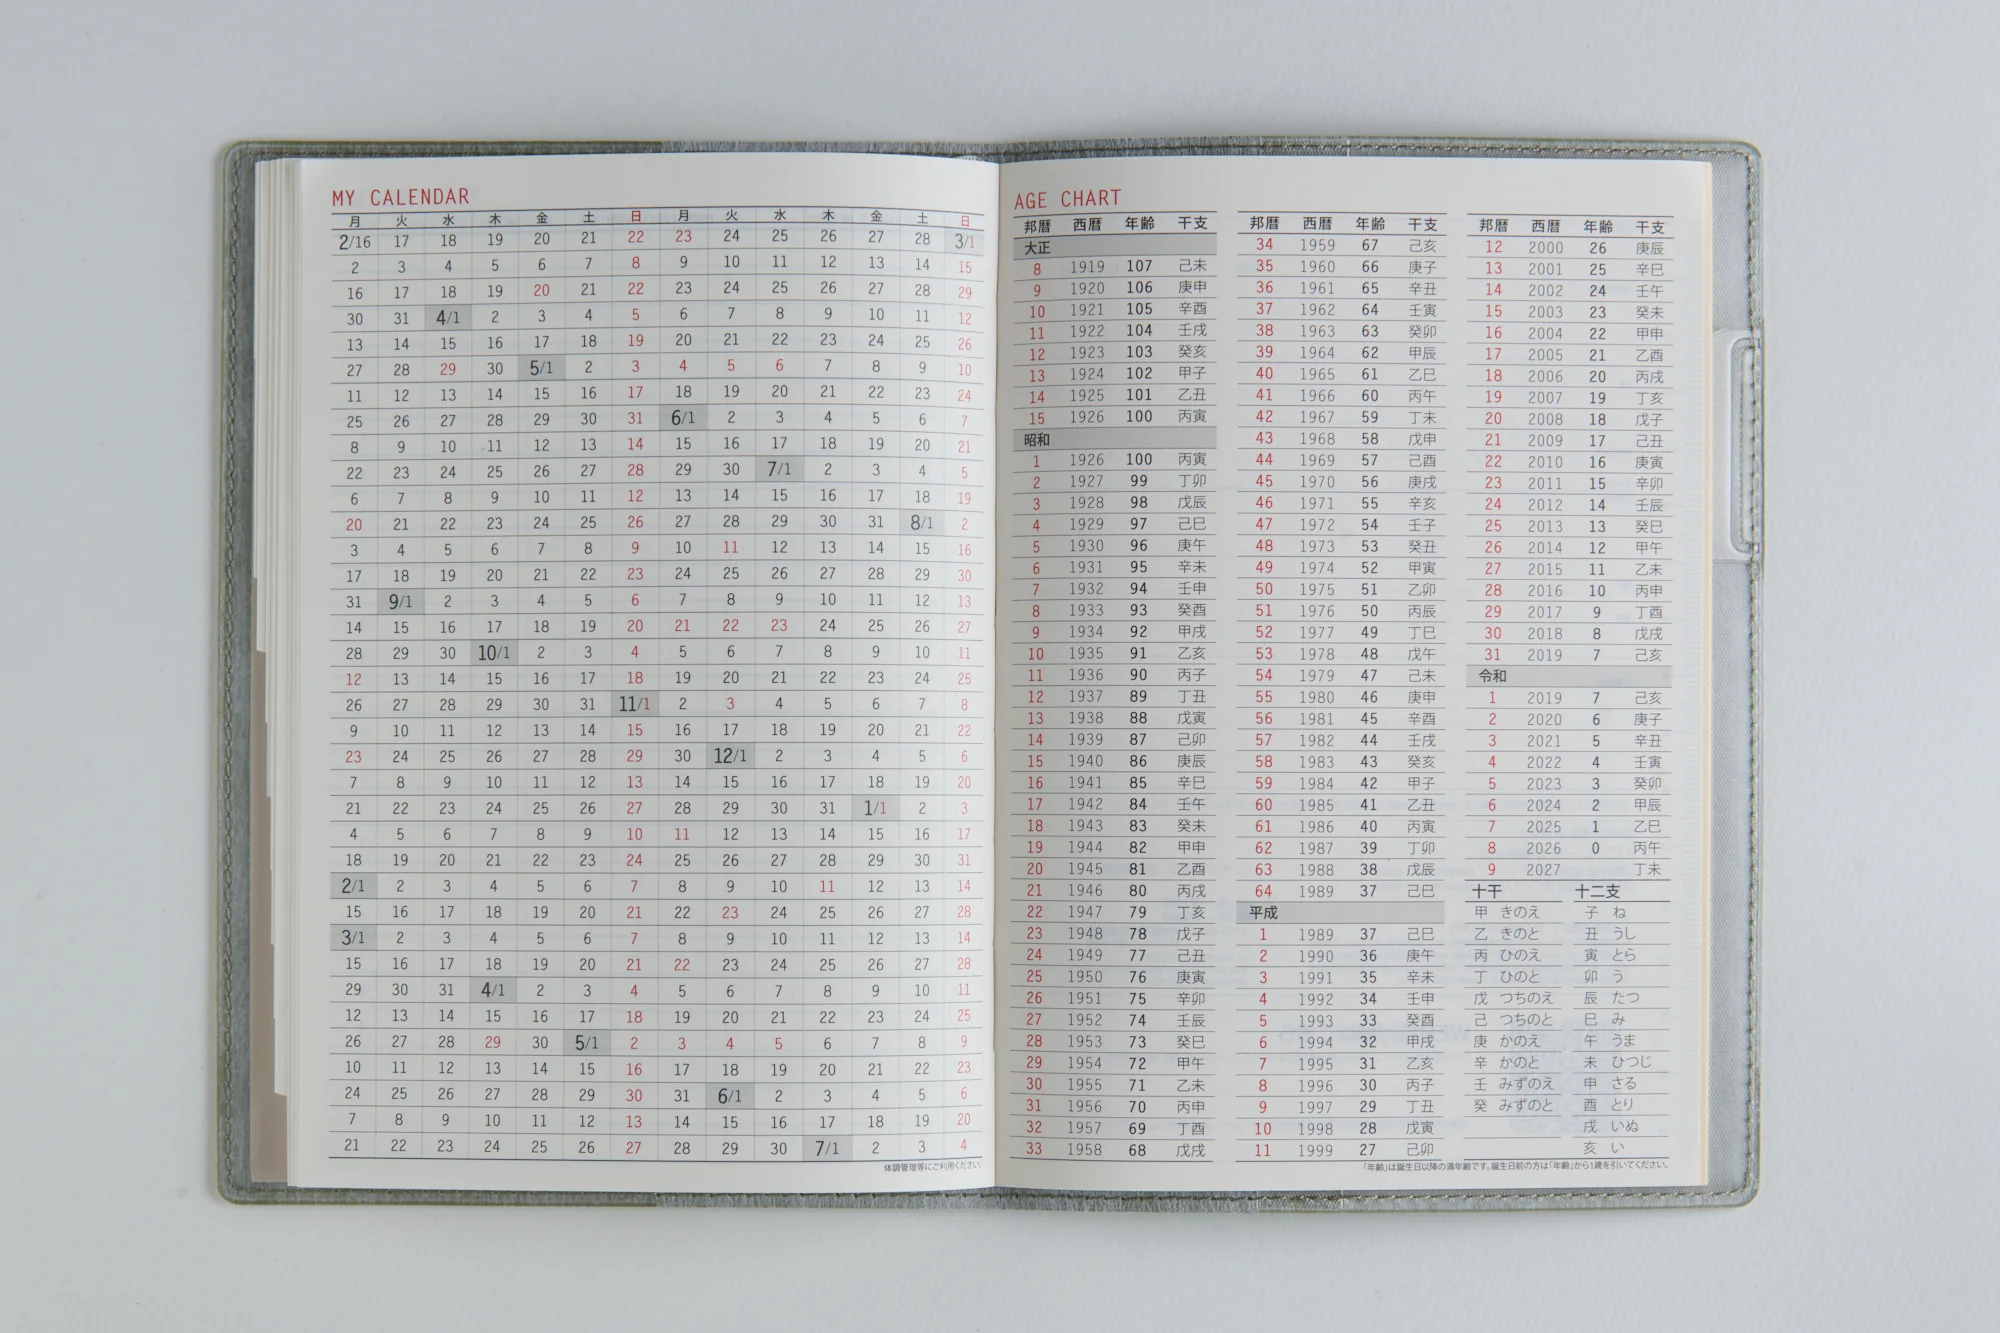 MY CALENDAR
月 火 水 木 金 土 日 月 火 水 木 金 土 日
2/16 17 18 19 20 21 22 23 24 25 26 27 28 3/1
2 3 4 5 6 7 8 9 10 11 12 13 14 15
16 17 18 19 20 21 22 23 24 25 26 27 28 29
30 31 4/1 2 3 4 5 6 7 8 9 10 11 12
13 14 15 16 17 18 19 20 21 22 23 24 25 26
27 28 29 30 5/1 2 3 4 5 6 7 8 9 10
11 12 13 14 15 16 17 18 19 20 21 22 23 24
25 26 27 28 29 30 31 6/1 2 3 4 5 6 7
8 9 10 11 12 13 14 15 16 17 18 19 20 21
22 23 24 25 26 27 28 29 30 7/1 2 3 4 5
6 7 8 9 10 11 12 13 14 15 16 17 18 19
20 21 22 23 24 25 26 27 28 29 30 31 8/1 2
3 4 5 6 7 8 9 10 11 12 13 14 15 16
17 18 19 20 21 22 23 24 25 26 27 28 29 30
31 9/1 2 3 4 5 6 7 8 9 10 11 12 13
14 15 16 17 18 19 20 21 22 23 24 25 26 27
28 29 30 10/1 2 3 4 5 6 7 8 9 10 11
12 13 14 15 16 17 18 19 20 21 22 23 24 25
26 27 28 29 30 31 11/1 2 3 4 5 6 7 8
9 10 11 12 13 14 15 16 17 18 19 20 21 22
23 24 25 26 27 28 29 30 12/1 2 3 4 5 6
7 8 9 10 11 12 13 14 15 16 17 18 19 20
21 22 23 24 25 26 27 28 29 30 31 1/1 2 3
4 5 6 7 8 9 10 11 12 13 14 15 16 17
18 19 20 21 22 23 24 25 26 27 28 29 30 31
2/1 2 3 4 5 6 7 8 9 10 11 12 13 14
15 16 17 18 19 20 21 22 23 24 25 26 27 28
3/1 2 3 4 5 6 7 8 9 10 11 12 13 14
15 16 17 18 19 20 21 22 23 24 25 26 27 28
29 30 31 4/1 2 3 4 5 6 7 8 9 10 11
12 13 14 15 16 17 18 19 20 21 22 23 24 25
26 27 28 29 30 5/1 2 3 4 5 6 7 8 9
10 11 12 13 14 15 16 17 18 19 20 21 22 23
24 25 26 27 28 29 30 31 6/1 2 3 4 5 6
7 8 9 10 11 12 13 14 15 16 17 18 19 20
21 22 23 24 25 26 27 28 29 30 7/1 2 3 4
体調管理等にご利用ください。
AGE CHART
邦暦 西暦 年齢 干支
大正
8 1919 107 己未
9 1920 106 庚申
10 1921 105 辛酉
11 1922 104 壬戌
12 1923 103 癸亥
13 1924 102 甲子
14 1925 101 乙丑
15 1926 100 丙寅
昭和
1 1926 100 丙寅
2 1927 99 丁卯
3 1928 98 戊辰
4 1929 97 己巳
5 1930 96 庚午
6 1931 95 辛未
7 1932 94 壬申
8 1933 93 癸酉
9 1934 92 甲戌
10 1935 91 乙亥
11 1936 90 丙子
12 1937 89 丁丑
13 1938 88 戊寅
14 1939 87 己卯
15 1940 86 庚辰
16 1941 85 辛巳
17 1942 84 壬午
18 1943 83 癸未
19 1944 82 甲申
20 1945 81 乙酉
21 1946 80 丙戌
22 1947 79 丁亥
23 1948 78 戊子
24 1949 77 己丑
25 1950 76 庚寅
26 1951 75 辛卯
27 1952 74 壬辰
28 1953 73 癸巳
29 1954 72 甲午
30 1955 71 乙未
31 1956 70 丙申
32 1957 69 丁酉
33 1958 68 戊戌
邦暦 西暦 年齢 干支
34 1959 67 己亥
35 1960 66 庚子
36 1961 65 辛丑
37 1962 64 壬寅
38 1963 63 癸卯
39 1964 62 甲辰
40 1965 61 乙巳
41 1966 60 丙午
42 1967 59 丁未
43 1968 58 戊申
44 1969 57 己酉
45 1970 56 庚戌
46 1971 55 辛亥
47 1972 54 壬子
48 1973 53 癸丑
49 1974 52 甲寅
50 1975 51 乙卯
51 1976 50 丙辰
52 1977 49 丁巳
53 1978 48 戊午
54 1979 47 己未
55 1980 46 庚申
56 1981 45 辛酉
57 1982 44 壬戌
58 1983 43 癸亥
59 1984 42 甲子
60 1985 41 乙丑
61 1986 40 丙寅
62 1987 39 丁卯
63 1988 38 戊辰
64 1989 37 己巳
平成
1 1989 37 己巳
2 1990 36 庚午
3 1991 35 辛未
4 1992 34 壬申
5 1993 33 癸酉
6 1994 32 甲戌
7 1995 31 乙亥
8 1996 30 丙子
9 1997 29 丁丑
10 1998 28 戊寅
11 1999 27 己卯
邦暦 西暦 年齢 干支
12 2000 26 庚辰
13 2001 25 辛巳
14 2002 24 壬午
15 2003 23 癸未
16 2004 22 甲申
17 2005 21 乙酉
18 2006 20 丙戌
19 2007 19 丁亥
20 2008 18 戊子
21 2009 17 己丑
22 2010 16 庚寅
23 2011 15 辛卯
24 2012 14 壬辰
25 2013 13 癸巳
26 2014 12 甲午
27 2015 11 乙未
28 2016 10 丙申
29 2017 9 丁酉
30 2018 8 戊戌
31 2019 7 己亥
令和
1 2019 7 己亥
2 2020 6 庚子
3 2021 5 辛丑
4 2022 4 壬寅
5 2023 3 癸卯
6 2024 2 甲辰
7 2025 1 乙巳
8 2026 0 丙午
9 2027 丁未
十干 十二支
甲 きのえ 子 ね
乙 きのと 丑 うし
丙 ひのえ 寅 とら
丁 ひのと 卯 う
戊 つちのえ 辰 たつ
己 つちのと 巳 み
庚 かのえ 午 うま
辛 かのと 未 ひつじ
壬 みずのえ 申 さる
癸 みずのと 酉 とり
戌 いぬ
亥 い
「年齢」は誕生日以降の満年齢です。誕生日前の方は「年齢」から1歳を引いてください。